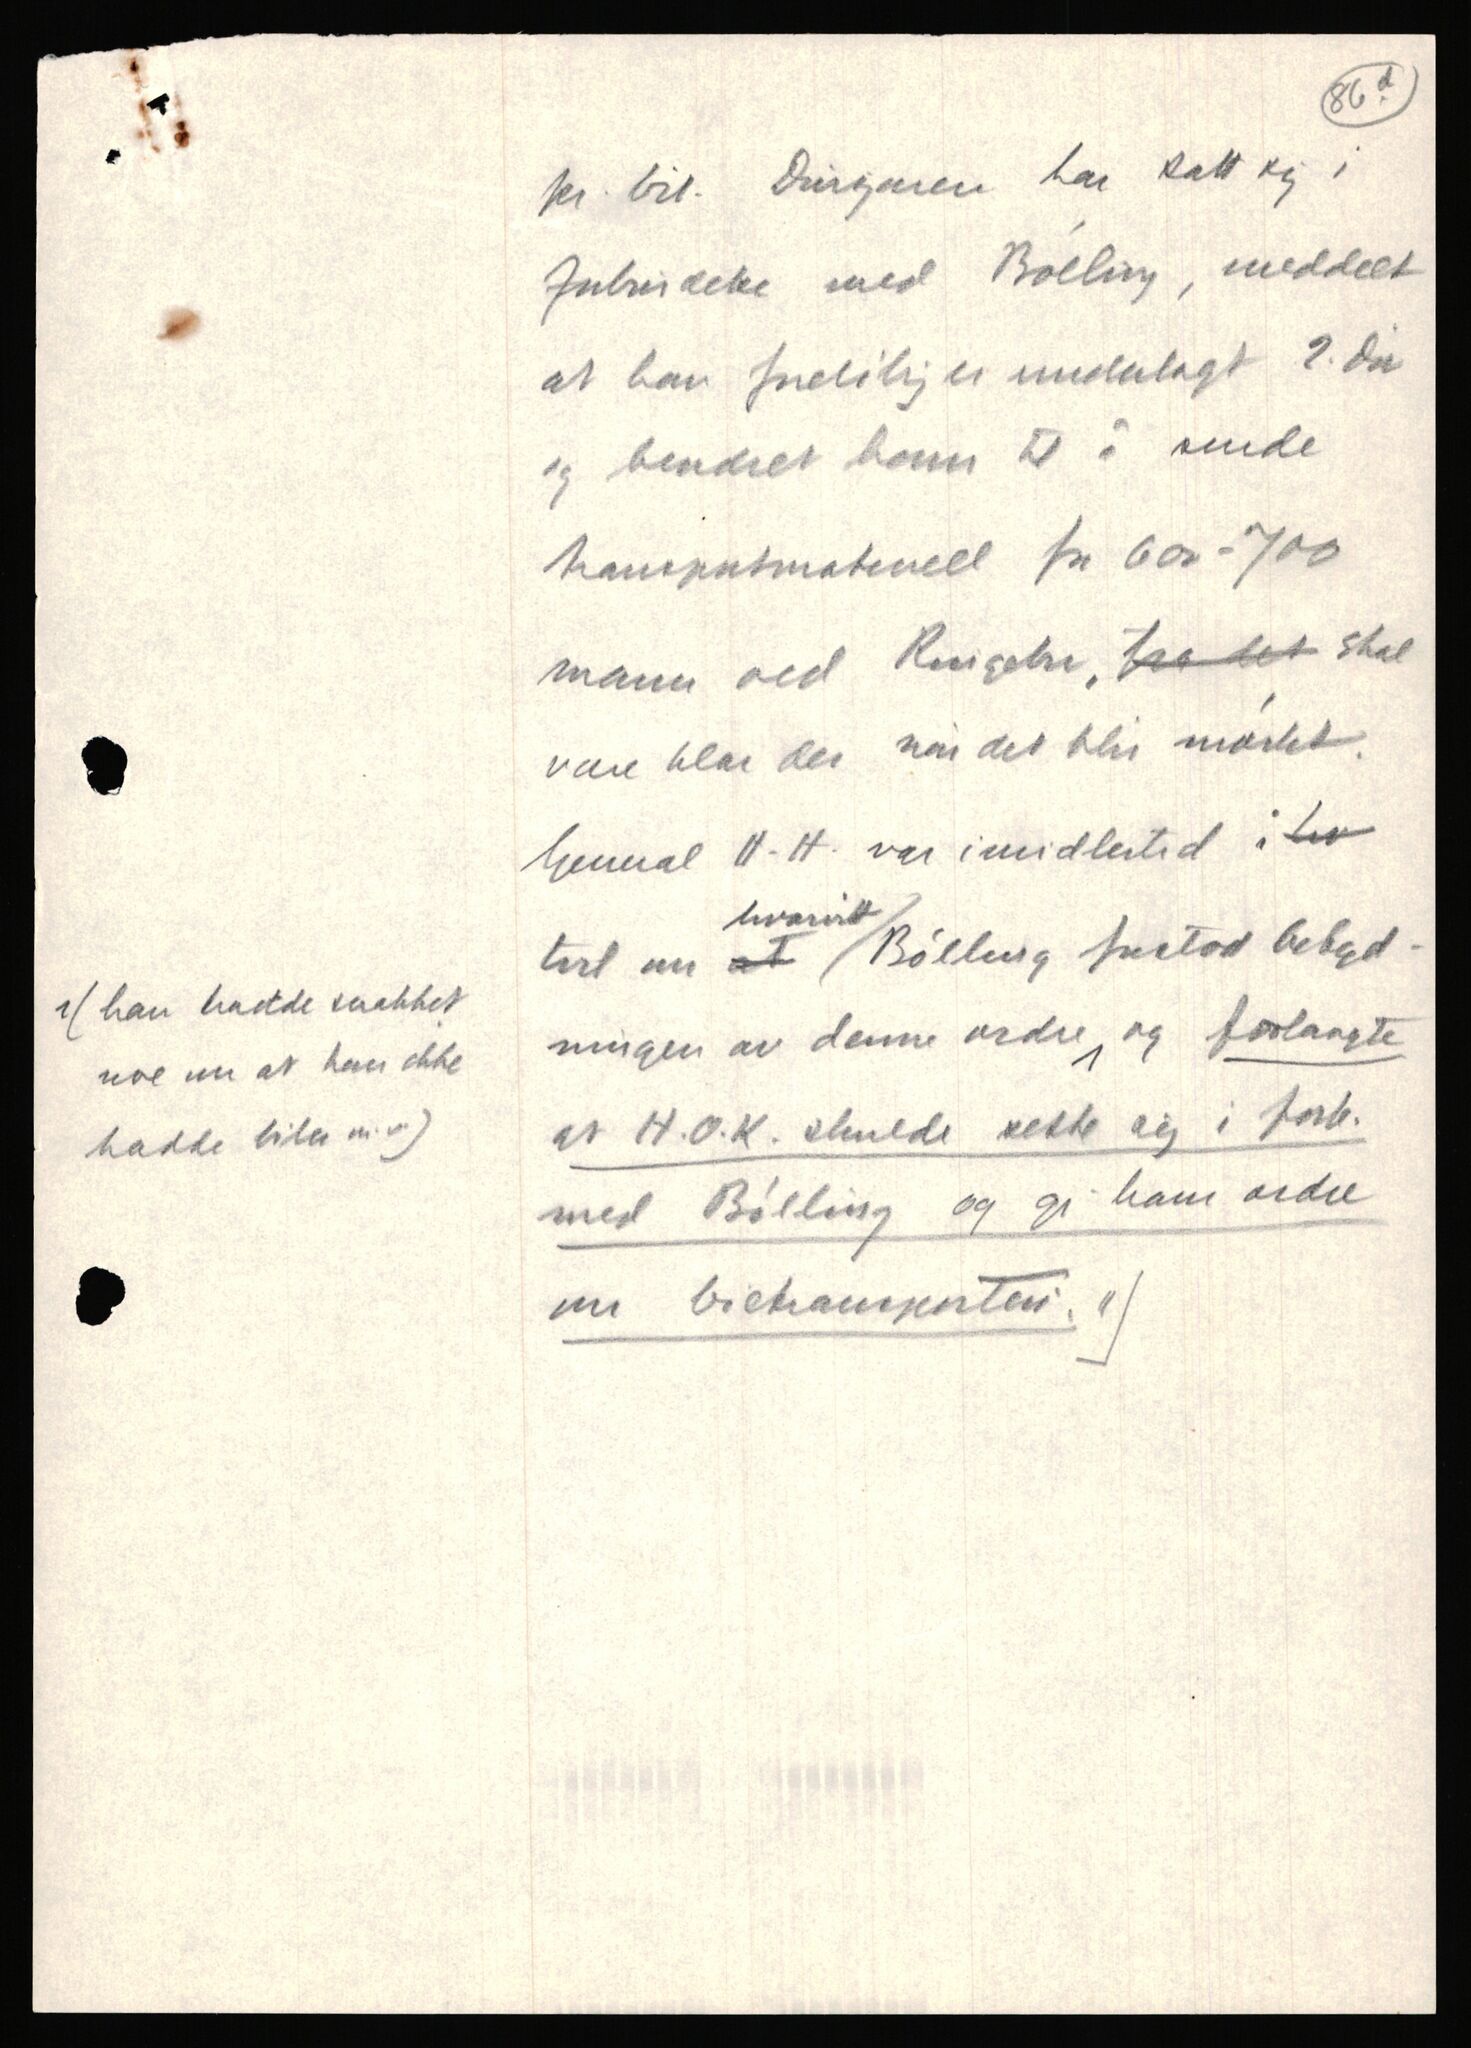 86d
pr. bil. Divisjonen har satt sig i
forbindelse med Bólling, meddelt
at han foreløbig er underlagt 2. Div
og beordret ham til å sende
transportmateriell for 600-700
mann ved Ringebu, fra det skal
være klar der når det blir mórkt.
General H-H. var imidlertid i tv
tvil om at hvorvidt Bólling forstod betyd-
ningen av denne ordre, og forlangte
1( han hadde snakket
noe om at han ikke
hadde biler m.v.)
at H.O.K. skulde sette sig i forb.
med Bólling og gi ham ordre
om biltransporten."]